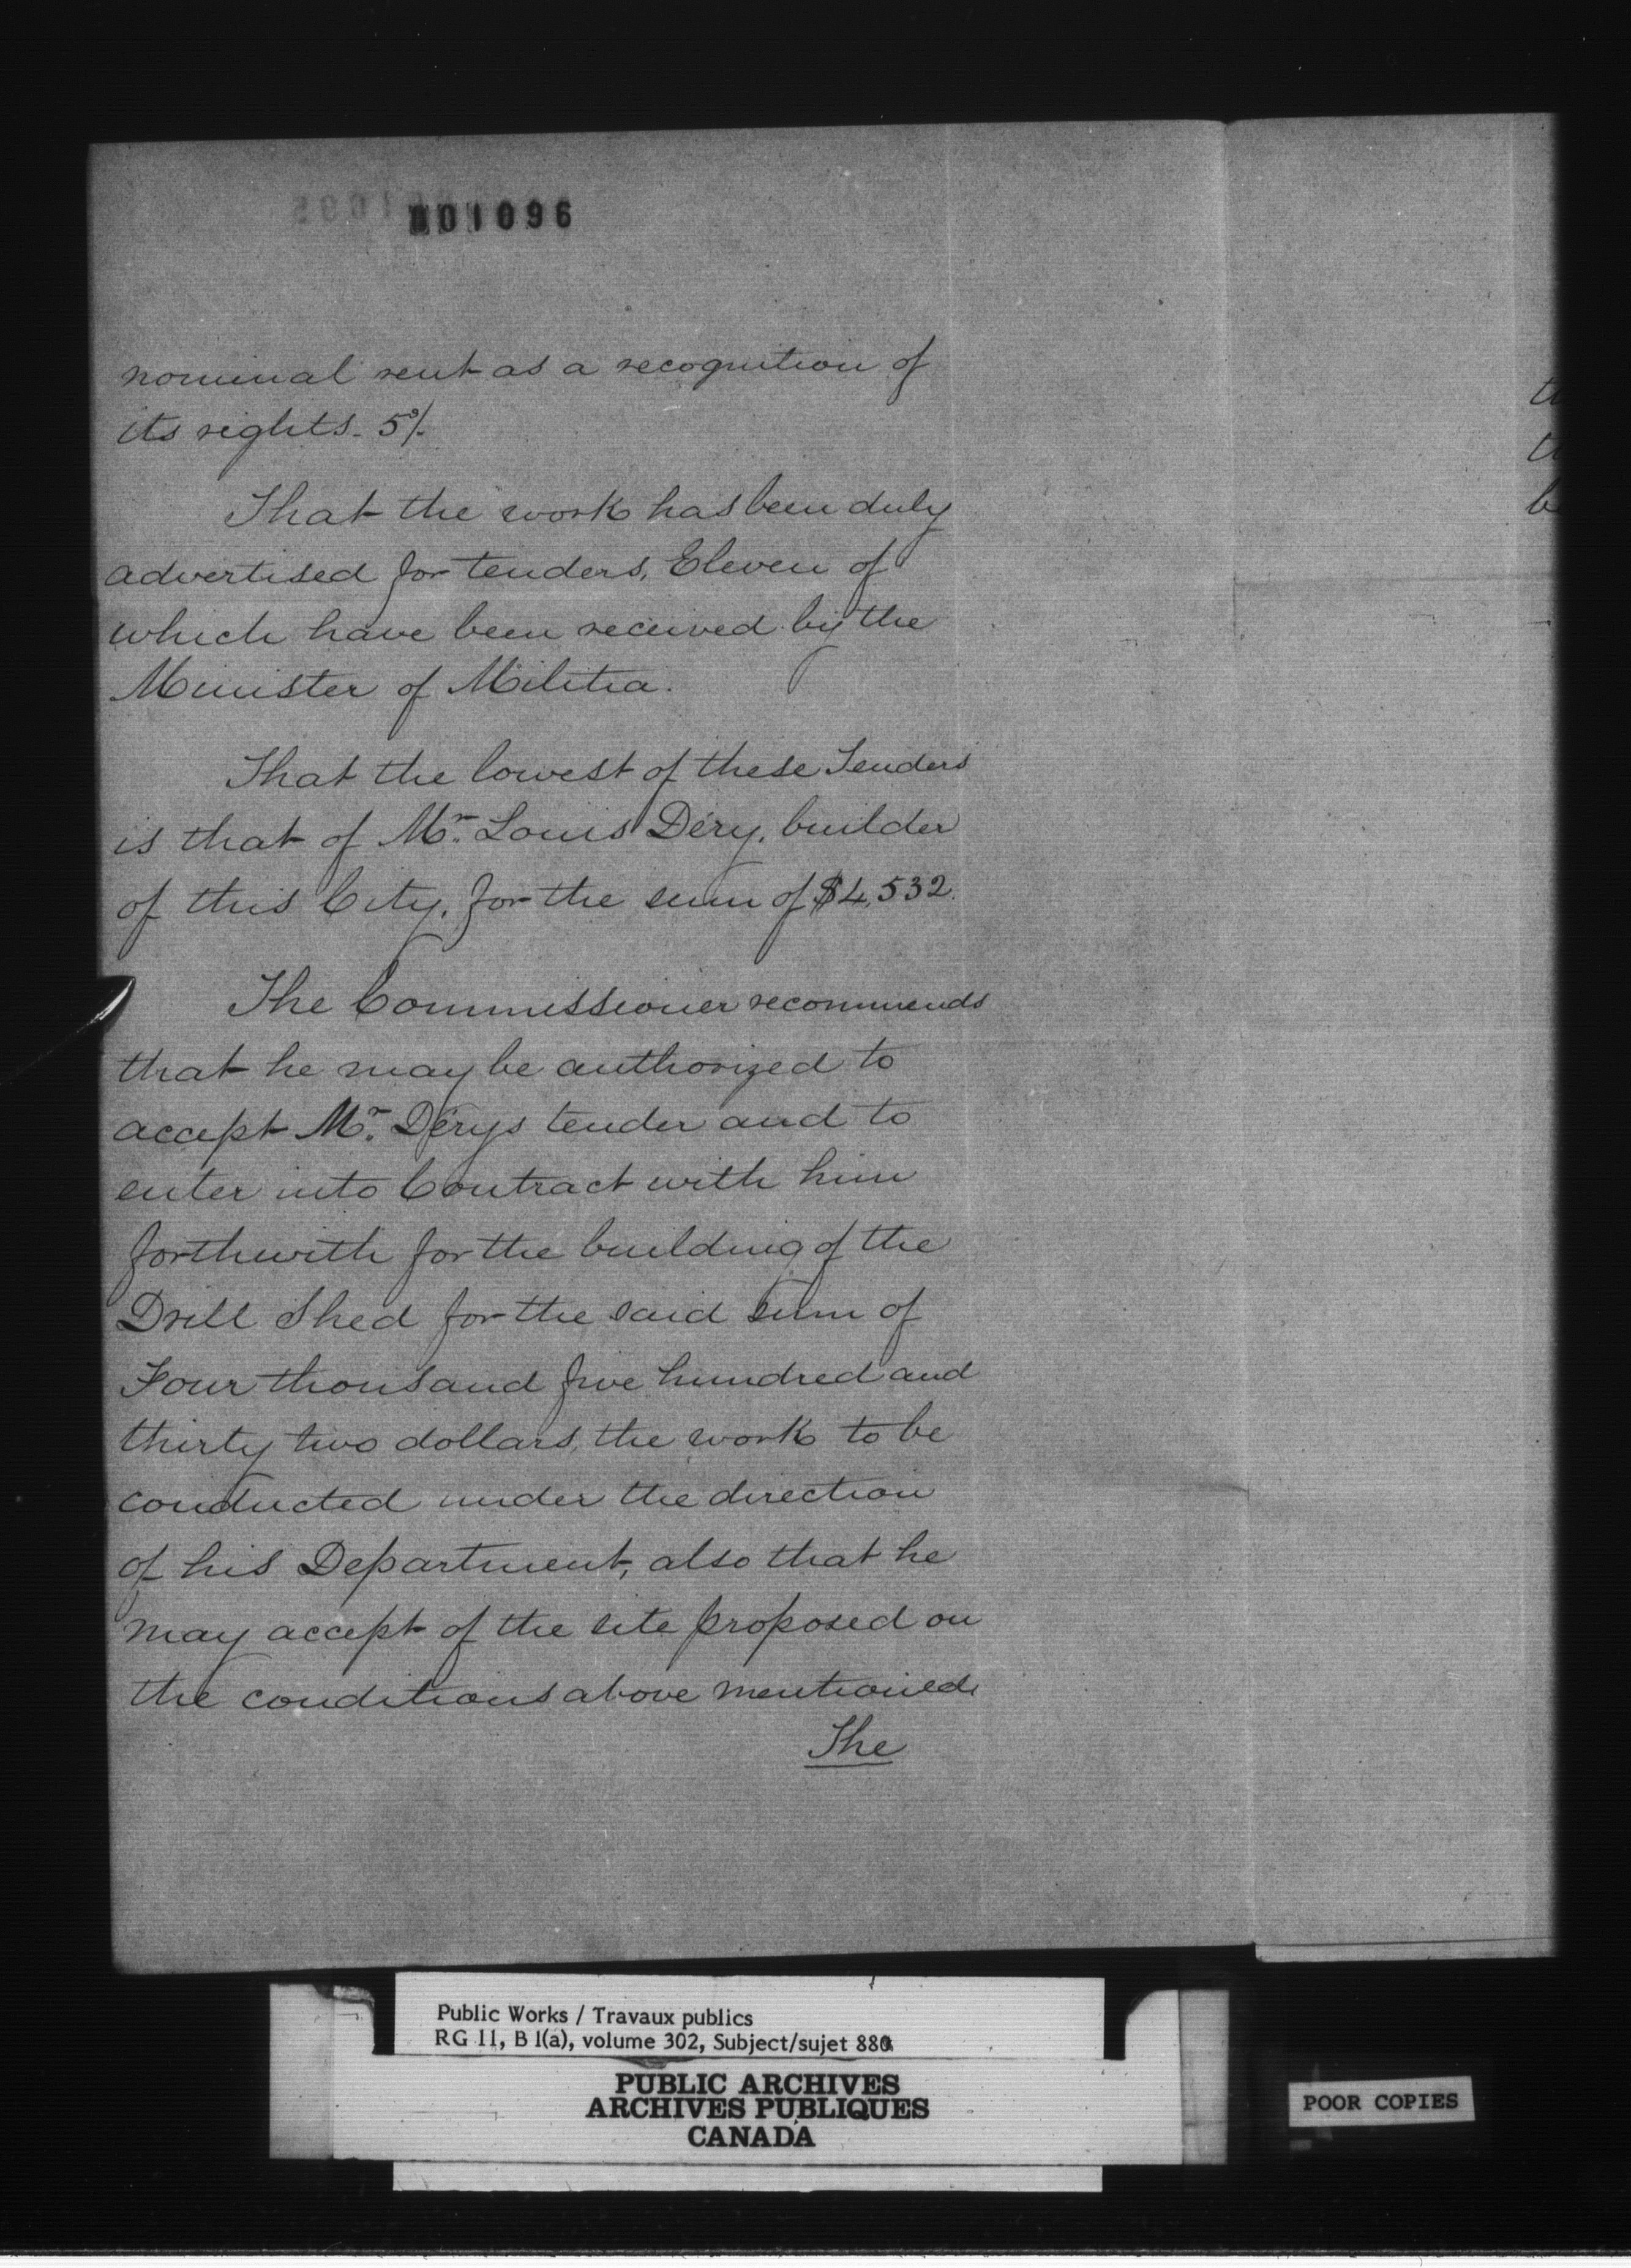 01096
nominal rent as a recognition of
its rights. 5/.
That the work has been duly
advertised for tenders, Eleven of
which have been received by the
Minister of Militia.
That the lowest of these Tenders
is that of Mr. Louis Déry, builder
of this City, for the sum of $4,532.
The Commissioner recommends
that he may be authorized to
accept Mr. Dérys tender and to
enter into Contract with him
forthwith for the building of the
Drill Shed for the said sum of
Four thousand five hundred and
thirty two dollars, the work to be
conducted under the direction
of his Department, also that he
may accept of the site proposed on
the conditions above mentioned.
The
Public Works / Travaux publics
RG 11, B 1(a), volume 302, Subject/sujet 880
PUBLIC ARCHIVES
ARCHIVES PUBLIQUES
CANADA
POOR COPIES